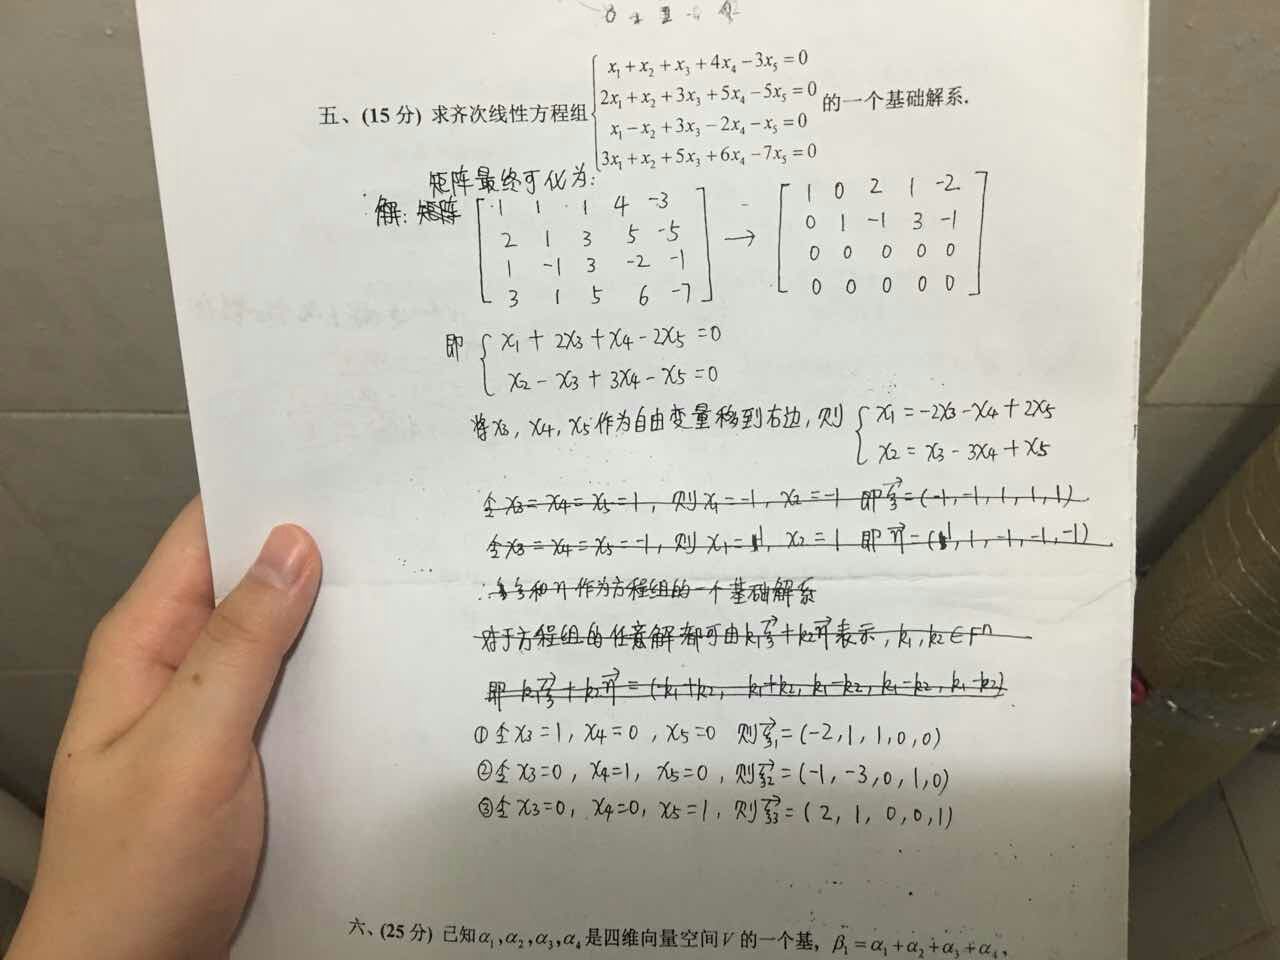 五、(15 分) 求齐次线性方程组
x₁+x₂+x₃+4x₄-3x₅=0
2x₁+x₂+3x₃+5x₄-5x₅=0
x₁-x₂+3x₃-2x₄-x₅=0
3x₁+x₂+5x₃+6x₄-7x₅=0
的一个基础解系.
矩阵最终可化为:
解: 矩阵
1 1 1 4 -3
2 1 3 5 -5
1 -1 3 -2 -1
3 1 5 6 -7
→
1 0 2 1 -2
0 1 -1 3 -1
0 0 0 0 0
0 0 0 0 0
即
x₁+2x₃+x₄-2x₅=0
x₂-x₃+3x₄-x₅=0
将x₃, x₄, x₅作为自由变量移到右边, 则
x₁=-2x₃-x₄+2x₅
x₂=x₃-3x₄+x₅
令x₃=x₄=x₅=1, 则x₁=-1, x₂=-1 即ξ⃗=(-1,-1,1,1,1)
令x₃=x₄=x₅=-1, 则x₁=1, x₂=1 即η⃗=(1,1,-1,-1,-1)
∴ξ和η作为方程组的一个基础解系
对于方程组的任意解都可由k₁ξ⃗+k₂η⃗表示, k₁,k₂∈Fⁿ
即 k₁ξ⃗+k₂η⃗=(-k₁+k₂, -k₁+k₂, k₁-k₂, k₁-k₂, k₁-k₂)
①令x₃=1, x₄=0, x₅=0 则ξ⃗₁=(-2,1,1,0,0)
②令x₃=0, x₄=1, x₅=0, 则ξ⃗₂=(-1,-3,0,1,0)
③令x₃=0, x₄=0, x₅=1, 则ξ⃗₃=(2,1,0,0,1)
六、(25 分) 已知α₁,α₂,α₃,α₄是四维向量空间V的一个基, β₁=α₁+α₂+α₃+α₄,